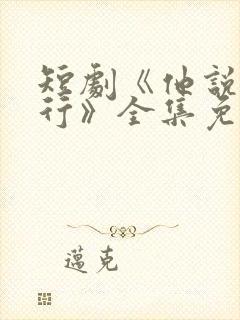 短劇《他說
行》全集免
邁克